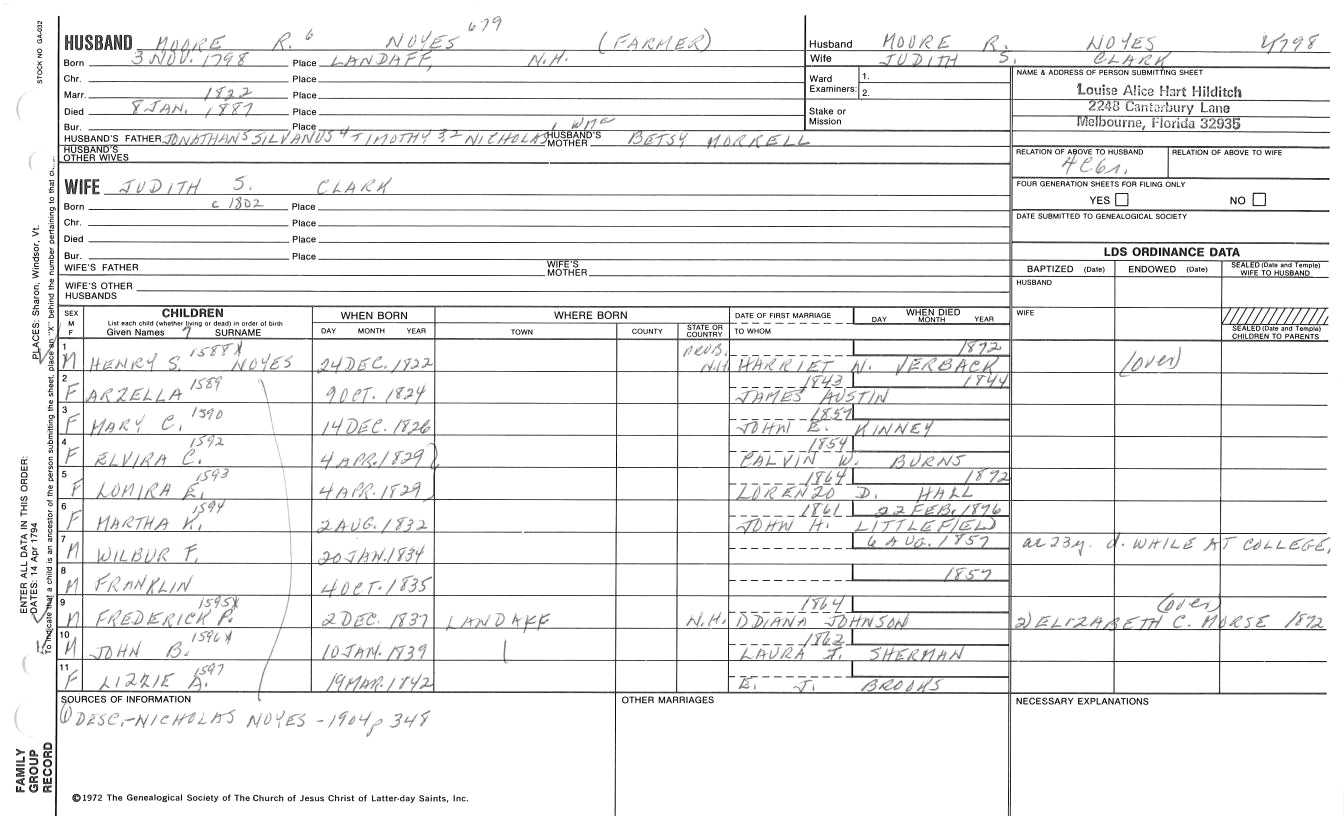 STOCK NO GA-032
HUSBAND MOORE R. 6 NOYES 679 (FARMER)
Born 3 NOV. 1798 Place LANDAFF, N.H.
Chr. Place
Marr. 1822 Place
Died 8 JAN. 1887 Place
Bur. Place
HUSBAND'S FATHER JONATHAN 5 SILVANUS 4 TIMOTHY 3, 2 NICHOLAS 1 HUSBAND'S MOTHER BETSY MORRELL
HUSBAND'S OTHER WIVES
Husband MOORE R. NOYES 1798
Wife JUDITH S. CLARK
Ward Examiners: 1.
2.
Stake or Mission
NAME & ADDRESS OF PERSON SUBMITTING SHEET
Louise Alice Hart Hilditch
2248 Canterbury Lane
Melbourne, Florida 32935
RELATION OF ABOVE TO HUSBAND RELATION OF ABOVE TO WIFE
FOUR GENERATION SHEETS FOR FILING ONLY
YES NO
DATE SUBMITTED TO GENEALOGICAL SOCIETY
WIFE JUDITH S. CLARK
Born c 1802 Place
Chr. Place
Died Place
Bur. Place
WIFE'S FATHER WIFE'S MOTHER
WIFE'S OTHER HUSBANDS
LDS ORDINANCE DATA
BAPTIZED (Date) ENDOWED (Date) SEALED (Date and Temple) WIFE TO HUSBAND
HUSBAND
WIFE
SEALED (Date and Temple) CHILDREN TO PARENTS
SEX M F CHILDREN List each child (whether living or dead) in order of birth Given Names 7 SURNAME
WHEN BORN DAY MONTH YEAR
WHERE BORN TOWN COUNTY STATE OR COUNTRY
DATE OF FIRST MARRIAGE TO WHOM
WHEN DIED DAY MONTH YEAR
1 M HENRY S. 1588X NOYES 24 DEC. 1822 PROB. N.H. HARRIET N. VERBACK 1872 (over)
2 F ARZELLA 1589 9 OCT. 1824 1843 JAMES AUSTIN 1844
3 F MARY C. 1590 14 DEC. 1826 1857 JOHN E. KINNEY
4 F ELVIRA C. 1592 4 APR. 1829 1854 CALVIN W. BURNS
5 F LOMIRA E. 1593 4 APR. 1829 1864 LORENZO D. HALL 1892
6 F MARTHA K. 1594 2 AUG. 1832 1861 JOHN H. LITTLEFIELD 22 FEB. 1896
7 M WILBUR F. 20 JAN. 1834 6 AUG. 1857 ae 23y. d. WHILE AT COLLEGE.
8 M FRANKLIN 4 OCT. 1835 1857
9 M FREDERICK P. 1595X 2 DEC. 1837 LANDAFF N.H. 1864 DDIANA JOHNSON (over) 2) ELIZABETH C. MORSE 1872
10 M JOHN B. 1596X 10 JAN. 1839 1862 LAURA F. SHERMAN
11 F LIZZIE A. 1597 19 MAR. 1842 E. J. BROOKS
SOURCES OF INFORMATION
① DESC.-NICHOLAS NOYES - 1904 p 348
OTHER MARRIAGES
NECESSARY EXPLANATIONS
©1972 The Genealogical Society of The Church of Jesus Christ of Latter-day Saints, Inc.
FAMILY GROUP RECORD
ENTER ALL DATA IN THIS ORDER:
DATES: 14 Apr 1794
PLACES: Sharon, Windsor, Vt.
To indicate that a child is an ancestor of the person submitting the sheet, place an "X" behind the number pertaining to that